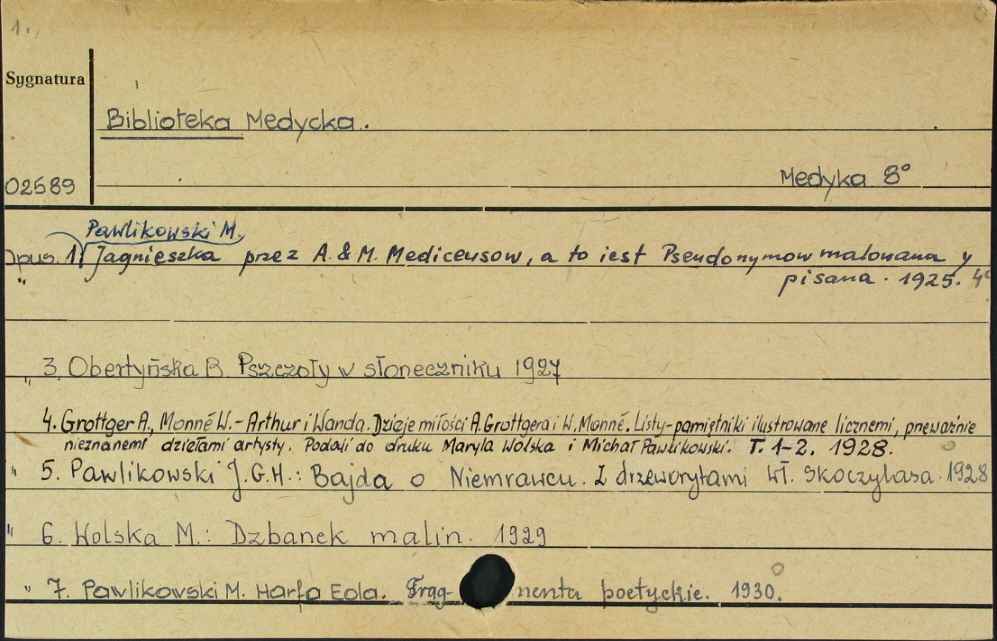 1.
Sygnatura
Biblioteka Medycka.
02589
Medyka 8°
Pawlikowski M.
Opus. 1. Jagnieszka przez A. & M. Mediceusow, a to iest Pseudonymow malowana y
" pisana. 1925. 4°
" 3. Obertyńska B. Pszczoły w słoneczniku 1927
4. Grottger A., Monné W. - Arthur i Wanda. Dzieje miłości A. Grottgera i W. Monné. Listy - pamiętniki ilustrowane licznemi, przeważnie
nieznanemi dziełami artysty. Podali do druku Maryla Wolska i Michał Pawlikowski. T. 1-2. 1928.
" 5. Pawlikowski J.G.H.: Bajda o Niemrawcu. Z drzeworytami Wł. Skoczylasa. 1928
" 6. Wolska M.: Dzbanek malin. 1929
" 7. Pawlikowski M. Harfa Eola. Frag- menta poetyckie. 1930.